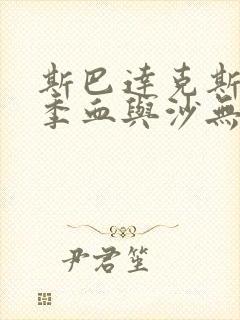 斯巴達克斯
季血與沙無
尹君笙